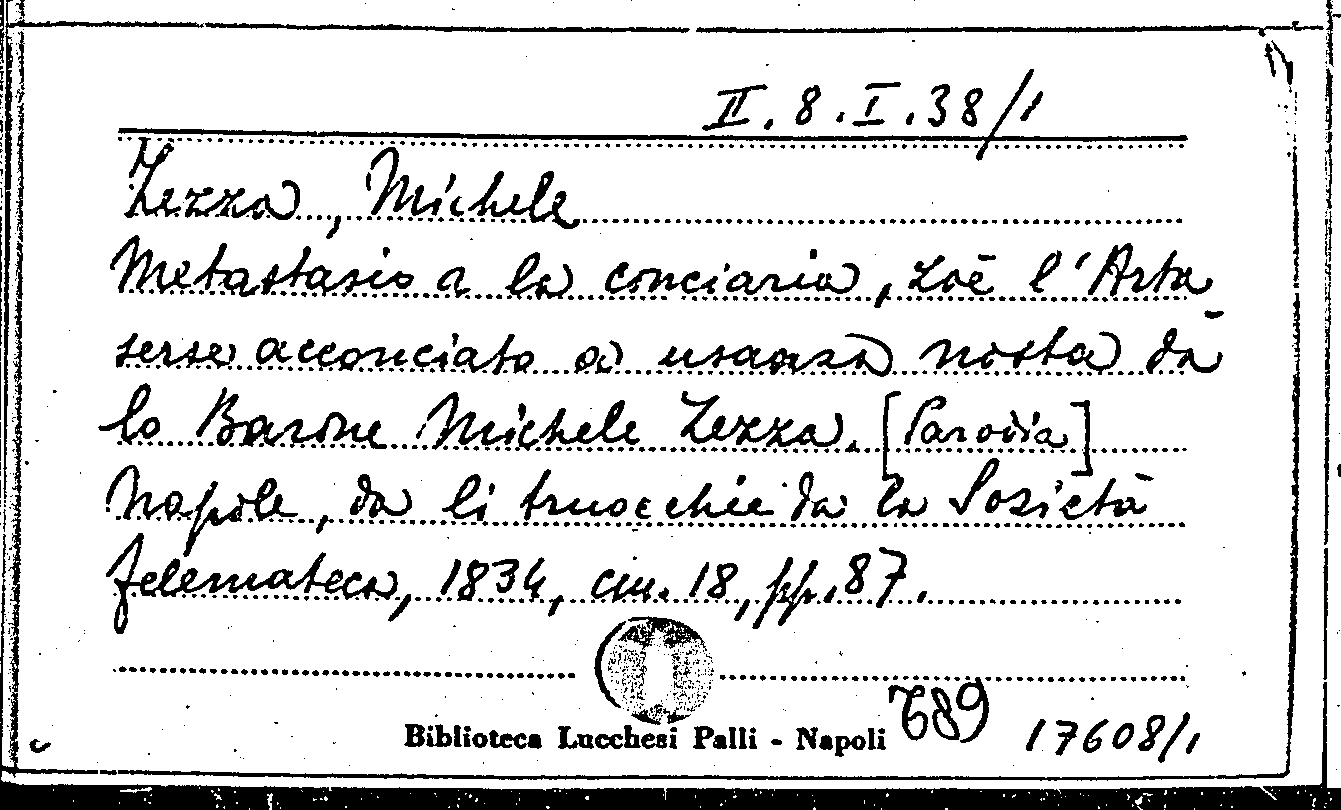 II. 8. I. 38/1
Zezza, Michele
Metastasio a la conciaria, zoè l'Arta
serse acconciato a usanza nosta da
lo Barone Michele Zezza. [Parodia]
Napole, da li truocchie da la Sozietà
felemateca, 1834, cm. 18, pp. 87.
689
Biblioteca Lucchesi Palli - Napoli
17608/1